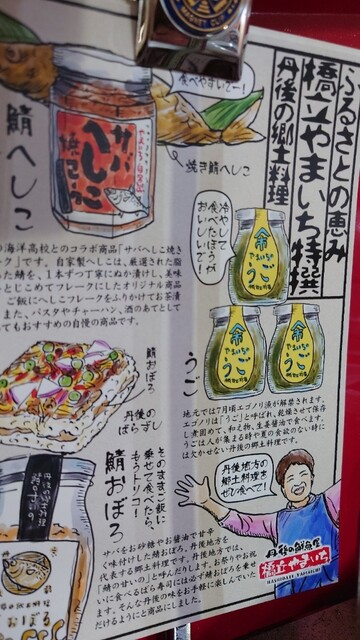 ふるさとの恵み
橋立やまいち特撰
丹後の郷土料理
食べやすいでー!
焼き鯖へしこ
サバ
へしこ
鯖へしこ
海洋高校とのコラボ商品「サバへしこ焼き
ク」です。自家製へしこは、厳選された脂
った鯖を、1本ずつ丁寧にぬか漬けし、美味
とじこめてフレークにしたオリジナル商品
ご飯にへしこフレークをふりかけてお茶漬
また、パスタやチャーハン、酒のあてとして
てもおすすめの自慢の商品です。
冷やして
食べたほうが
おいしいでぇ!
やまいちの
うご
やまいちの
うご
やまいちの
うご
うご
地元では7月頃エゴノリ漁が解禁されます。
エゴノリは「うご」と呼ばれ、乾燥させて保存
し煮固めて、和え物、生姜醤油で食べます。
うごは人が集まる時や夏の食欲のない時に
は欠かせない丹後の郷土料理です。
鯖おぼろ
丹後の
ばらずし
鯖おぼろ
そのままご飯に
乗せて食べたら、
もうトリコ!
サバをお砂糖やお醤油で甘辛
く味付けした鯖おぼろ。丹後地方を
代表する郷土料理です。丹後地方では、
「鯖のせいの」と呼んだりします。お祭りやお祝
いに食べるばら寿司には必ず鯖おぼろを乗せ
ます。そんな丹後の味をお手軽に楽しんでいた
だけるようにと商品にしました。
おぼろ
丹後地方の
郷土料理を
ぜひ食べて!
丹後の鮮魚屋
橋立やまいち
HASHIDATE YAMAICHI